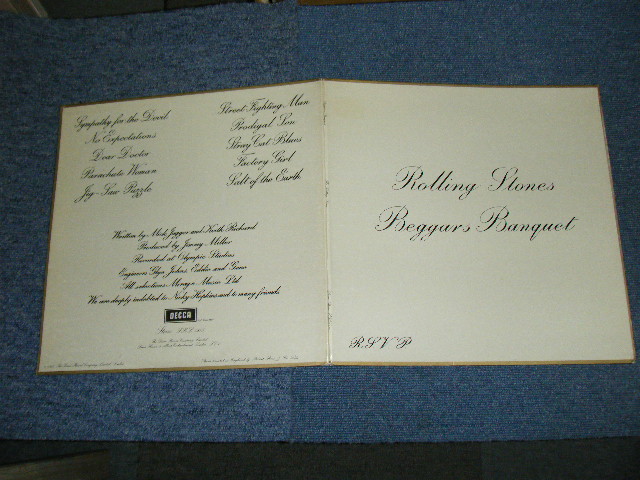 Sympathy for the Devil
No Expectations
Dear Doctor
Parachute Woman
Jig-Saw Puzzle
Street Fighting Man
Prodigal Son
Stray Cat Blues
Factory Girl
Salt of the Earth
Written by Mick Jagger and Keith Richard
Produced by Jimmy Miller
Recorded at Olympic Studios
Engineers Glyn Johns, Eddie and Gene
All selections Mirage Music Ltd
We are deeply indebted to Nicky Hopkins and to many friends
DECCA
Stereo
Rolling Stones
Beggars Banquet
R.S.V.P.